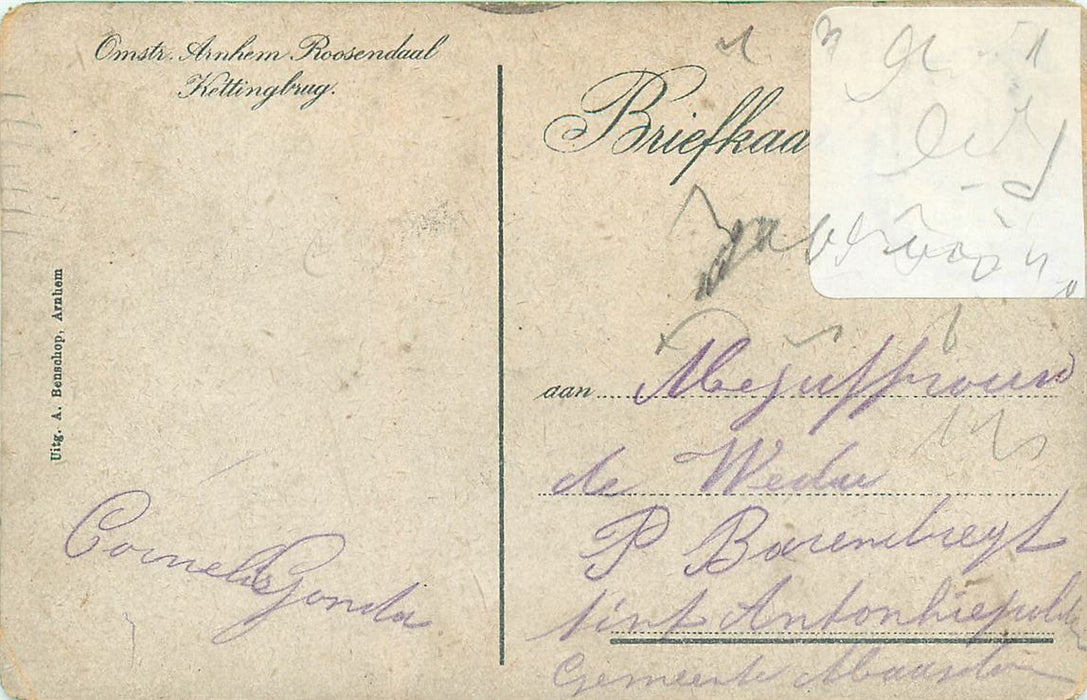 Omstr. Arnhem Roosendaal
Kettingbrug.
Uitg. A. Benschop, Arnhem
Briefkaa
aan Mejuffrouw
de Wedu
P Barendregt
sint Antoniepolder
Gemeente Maasdam
Cornelis Gouda